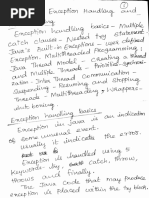 ①
Exception Handling and
Exception handling basics - Multiple
catch clauses - Nested try statement
Java's Built in Exceptions - user defined
Exception. Multithreaded Programming:
Java Thread Model - Creating a Thread
and Multiple Threads - Priorities - Synchroni-
zation - Inter Thread Communication -
Suspending - Resuming and Stopping
Threads - Multithreading. Wrappers -
Auto boxing.
Exception handling basics
Exception in Java is an indication
of some unusual event.
usually it indicate the error.
Exception is handled using 5
keywords try, catch, throw,
throws and finally.
The Java code that may produce
exception is placed within the try block.